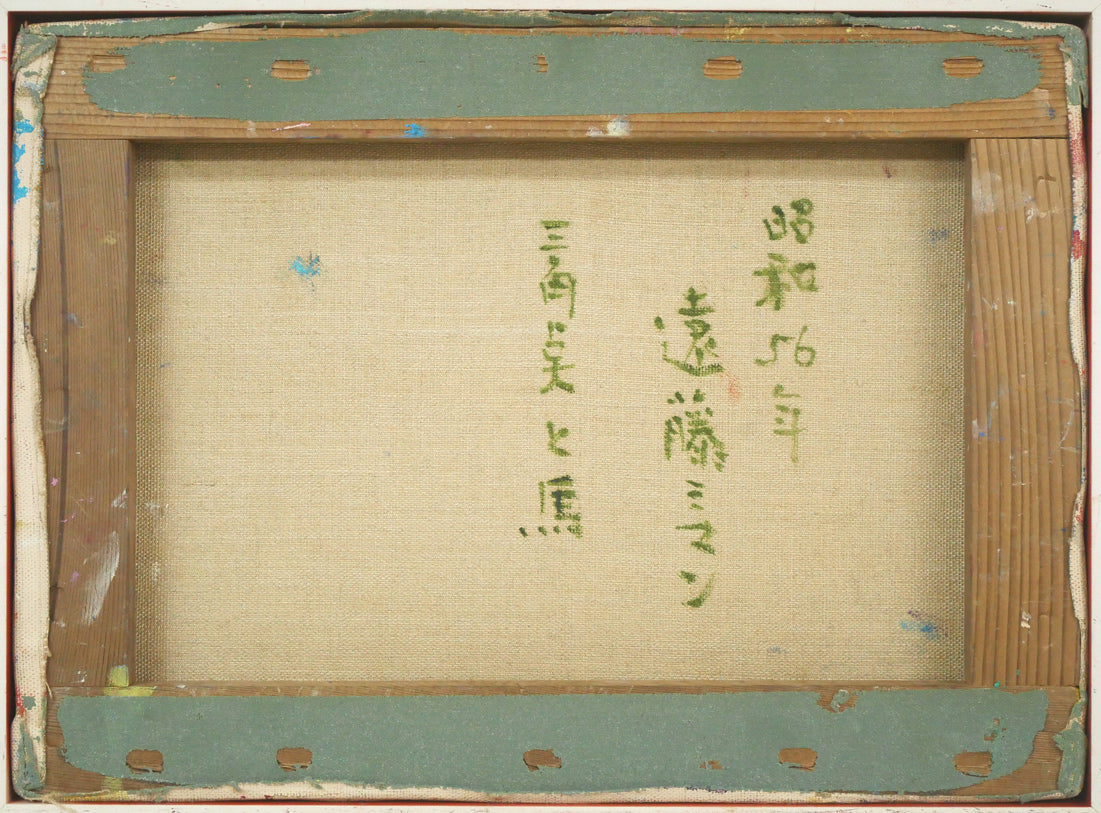 昭和56年
遠藤ミマン
三角奌と馬